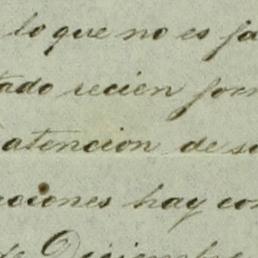 lo que no es fa
tado recien for
atencion de su
ciones hay con
de Diciembre